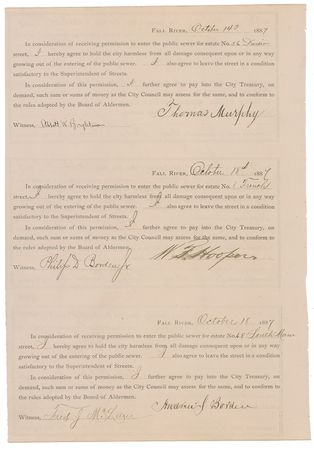 FALL RIVER, October 14th 1887
In consideration of receiving permission to enter the public sewer for estate No. 56
street, I hereby agree to hold the city harmless from all damage consequent upon or in any way
growing out of the entering of the public sewer. I also agree to leave the street in a condition
satisfactory to the Superintendent of Streets.
In consideration of this permission, I further agree to pay into the City Treasury, on
demand, such sum or sums of money as the City Council may assess for the same, and to conform
to the rules adopted by the Board of Aldermen.
Thomas Murphy
Witness,
FALL RIVER, October 18th 1887
In consideration of receiving permission to enter the public sewer for estate No. 1 French
street, I hereby agree to hold the city harmless from all damage consequent upon or in any way
growing out of the entering of the public sewer. I also agree to leave the street in a condition
satisfactory to the Superintendent of Streets.
In consideration of this permission, I further agree to pay into the City Treasury, on
demand, such sum or sums of money as the City Council may assess for the same, and to conform
to the rules adopted by the Board of Aldermen.
Witness, Philip D Borden Jr
Hooper
FALL RIVER, October 18 1887
In consideration of receiving permission to enter the public sewer for estate No. 68 South Main
street, I hereby agree to hold the city harmless from all damage consequent upon or in any way
growing out of the entering of the public sewer. I also agree to leave the street in a condition
satisfactory to the Superintendent of Streets.
In consideration of this permission, I further agree to pay into the City Treasury, on
demand, such sum or sums of money as the City Council may assess for the same, and to conform
to the rules adopted by the Board of Aldermen.
Andrew J Borden
Witness, Fred J